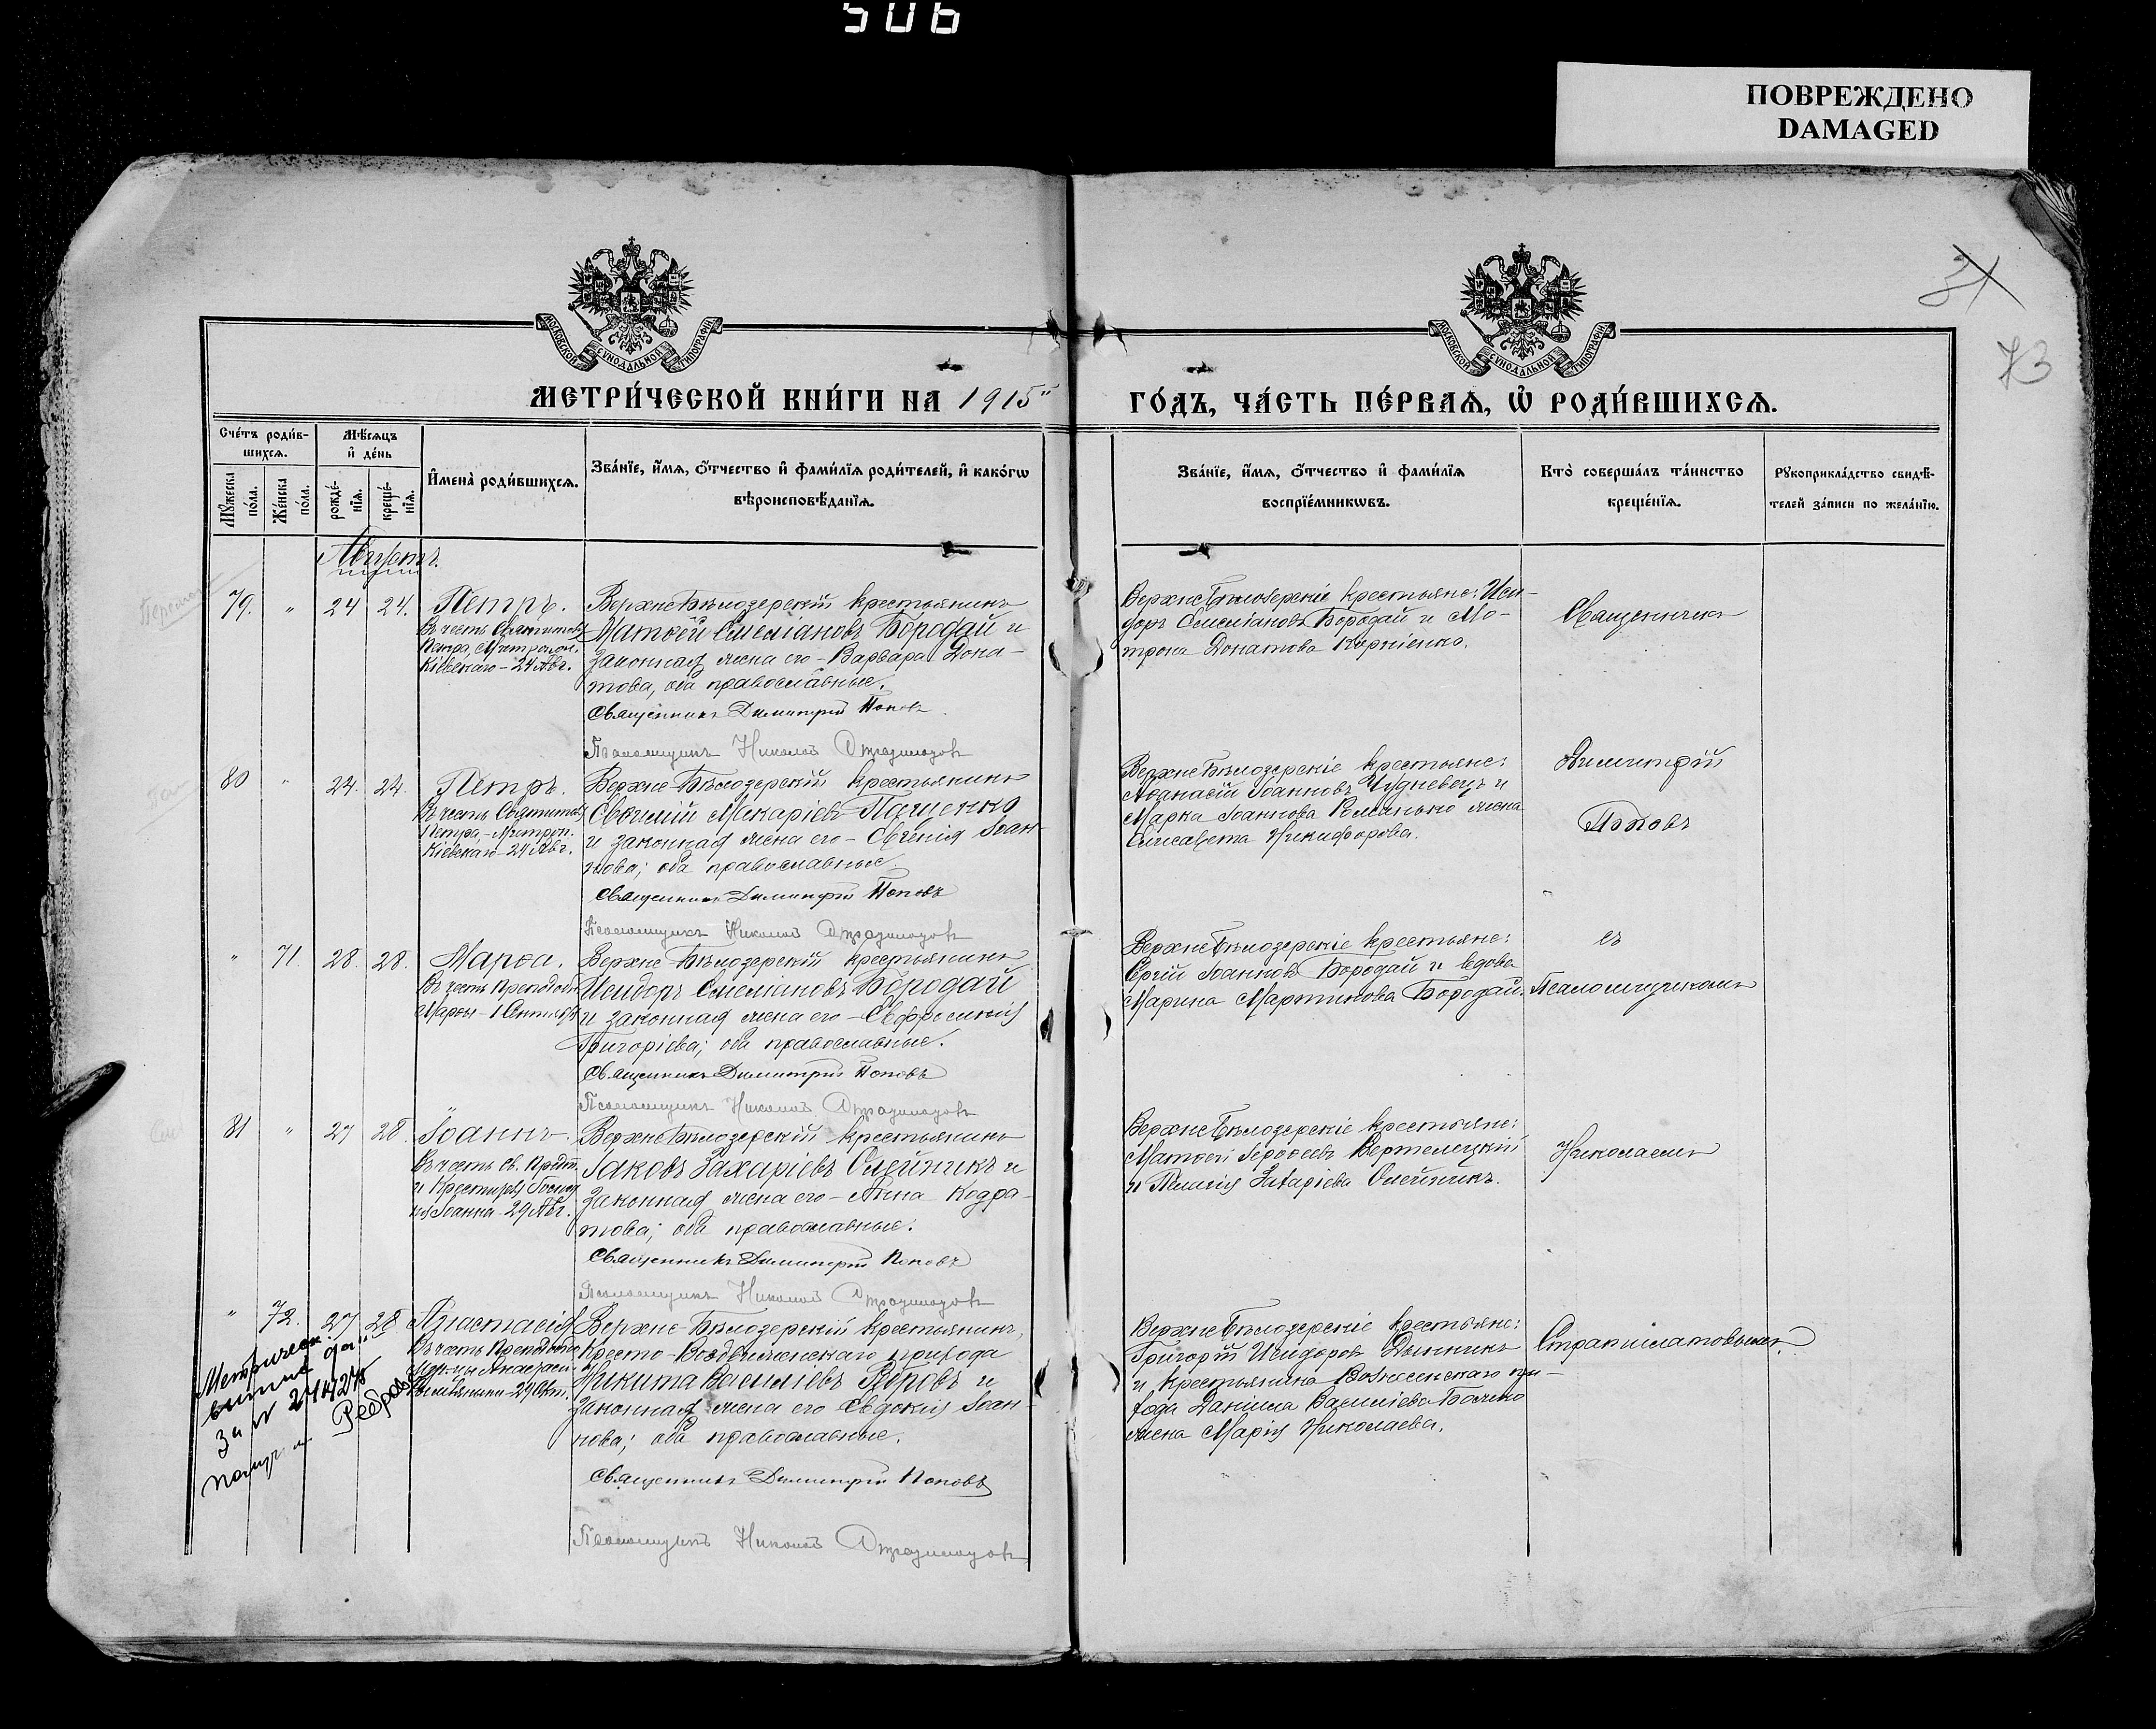 506
ПОВРЕЖДЕНО
DAMAGED
73
МОСКОВСКОЙ СУНОДАЛЬНОЙ ТИПОГРАФІИ
МОСКОВСКОЙ СУНОДАЛЬНОЙ ТИПОГРАФІИ
МЕТРИ́ЧЕСКОЙ КНИ́ГИ НА 1915й
ГО́ДЪ, ЧА́СТЬ ПЕ́РВАЯ, Ѡ҆ РОДИ́ВШИХСЯ.
Сче́тъ роди́в-
шихся.
Мѣ́сяцъ
и҆ де́нь
Мꙋ́жеска по́ла.
Же́нска по́ла.
рожде́-
нїя.
креще́-
нїя.
И҆мена̀ роди́вшихся.
Зва́нїе, и҆́мя, ѻ҆́тчество и҆ фами́лїя роди́телей, и҆ како́гѡ
вѣроисповѣ́данїя.
Зва́нїе, и҆́мя, ѻ҆́тчество и҆ фами́лїя
воспрїе́мникѡвъ.
Кто̀ соверша́лъ та́инство
креще́нїя.
Рꙋкоприкла́дство свидѣ́-
телей за́писи по жела́нїю.
Августъ.
79. " 24 24. Петръ.
Въ честь Святителя
Петра, Митропол.
Кіевскаго - 24 Авг.
Верхне Бѣлозерскій крестьянинъ
Матѳей Емеліановъ Бородай и
законная жена его - Варвара Дона-
това, оба православные.
Священникъ Димитрій Поповъ
Псаломщикъ Николай
Верхне Бѣлозерскіе крестьяне: Иси-
доръ Емеліановъ Бородай и Мо-
трона Донатова Корніенко.
Священникъ
80 " 24. 24. Петръ.
Въ честь Святителя
Петра, - Митроп.
Кіевскаго - 24 Авг.
Верхне-Бѣлозерскій крестьянинъ
Евѳимій Макаріевъ Пащенко
и законная жена его - Евгенія Іоан-
нова; оба православные.
Священникъ Димитрій Поповъ
Псаломщикъ Николай
Верхне Бѣлозерскіе крестьяне:
Аѳанасій Іоанновъ Чудневецъ и
Марка Іоаннова Романько жена
Елисавета Никифорова.
Димитрій
Поповъ
" 71. 28. 28. Марѳа.
Въ честь Преподобн.
Марѳы - 1 Сентября
Верхне Бѣлозерскій крестьянинъ
Исидоръ Емеліановъ Бородай
и законная жена его - Евфросинія
Григоріева; оба православные.
Священникъ Димитрій Поповъ
Псаломщикъ Николай
Верхне Бѣлозерскіе крестьяне:
Сергій Іоанновъ Бородай и вдова
Марина Мартинова Бородай.
съ
Псаломщикомъ
81 " 27 28. Іоаннъ.
Въ честь св. Предт.
и Крестителя Господ
ня Іоанна - 29 Авг.
Верхне Бѣлозерскій крестьянинъ
Іаковъ Захаріевъ Олейникъ и
законная жена его - Анна Кодра-
това; оба православные.
Священникъ Димитрій Поповъ
Псаломщикъ Николай
Верхне Бѣлозерскіе крестьяне:
Матѳей Вертелецкій
и Пелагія Захаріева Олейникъ.
Николаемъ
" 72. 27 28 Анастасія
Верхне-Бѣлозерскій крестьянинъ,
Кресто-Воздвиженскаго прихода
Никита Василіевъ и
законная жена его Евдокія Іоан-
нова; оба православные.
Священникъ Димитрій Поповъ
Псаломщикъ Николай
Верхне Бѣлозерскіе крестьяне:
Григорій Исидоровъ
и крестьянина Вознесенскаго при-
хода Даніила Василіева
жена Марія Николаева.
за №